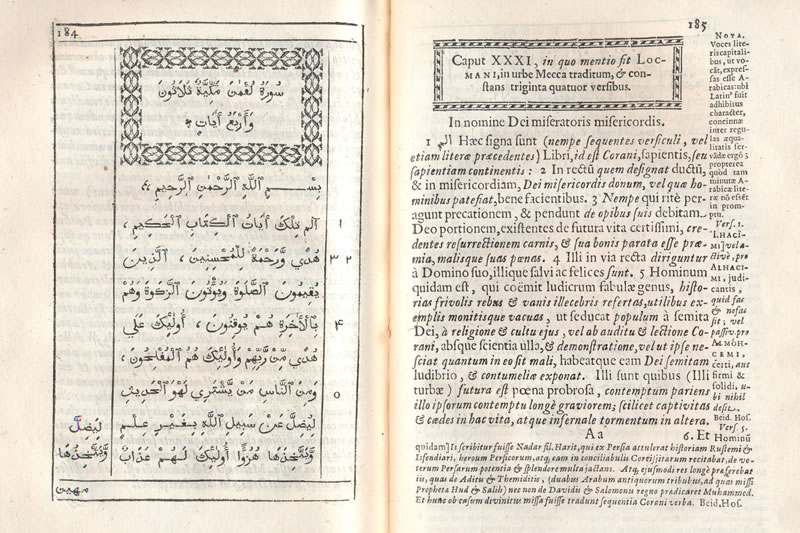 184
سورة لقمن مكية ثلاثون
وأربع آيات
بســـم اللّه الرّحمن الرّحيم
الم تلك آيات الكتاب الحكيم ، ١
هدي ورحمة للمحسنين ، الذين ٢ ٣
يقيمون الصلوة ويوتون الزكوة وهم
بالأخرة هم يوقنون ، أوليك علي ٤
هدي من ربهم وأوليك هم المفلحون ،
ومن الناس من يشتري لهو الحديث ٥
ليضل عن سبيل اللّه بغير علم
ويتخذها هزوا أوليك لهم عذاب
ليضل
ويتخذها
مهين
185
Caput XXXI, in quo mentio fit LOC-
MANI, in urbe Mecca traditum, & con-
stans triginta quatuor versibus.
In nomine Dei miseratoris misericordis.
1 الم Hæc signa sunt (nempe sequentes versiculi, vel
etiam literæ præcedentes) Libri, id est Corani, sapientis, seu
sapientiam continentis : 2 In rectū quem designat ductū,
& in misericordiam, Dei misericordis donum, vel quæ ho-
minibus patefiat, bene facientibus. 3 Nempe qui ritè per-
agunt precationem, & pendunt de opibus suis debitam
Deo portionem, existentes de futura vita certissimi, cre-
dentes resurrectionem carnis, & sua bonis parata esse præ-
mia, malisque suas pœnas. 4 Illi in via recta diriguntur
à Domino suo, illique salvi ac felices sunt. 5 Hominum
quidam est, qui coëmit ludicrum fabulæ genus, histo-
rias frivolis rebus & vanis illecebris refertas, utilibus ex-
emplis monitisque vacuas, ut seducat populum à semita
Dei, à religione & cultu ejus, vel ab auditu & lectione Co-
rani, absque scientia ulla, & demonstratione, vel ut ipse ne-
sciat quantum in eo sit mali, habeatque eam Dei semitam
ludibrio, & contumeliæ exponat. Illi sunt quibus (Illi
turbæ) futura est pœna probrosa, contemptum pariens
illo ipsorum contemptu longè graviorem; scilicet captivitas
& cædes in hac vita, atque infernale tormentum in altera.
Aa 6. Et
NOTA.
Voces lite-
ris capitali-
bus, ut vo-
cāt, expres-
sas esse A-
rabicas: ubi
Latin⁹ fuit
adhibitus
character,
concinnæ
inter regu-
las æqua-
litatis ser-
vādæ ergò;
propterea
quòd tam
minutæ A-
rabicæ lite-
ræ nō essēt
in prom-
ptu.
Vers. 1.
LHACI-
MI] vel a-
ctivè, pro
ALHACI-
MI, judi-
cantis,
quid fas
& nefas
sit; vel
passivè. pro
ALMOH-
CEMI,
certi, aut
firmi &
solidi, u-
bi nihil
desit.
Beid. Hos.
Vers. 5.
Hominū
quidam] Is scribitur fuisse Nadar fil. Harit, qui ex Persia attulerat historiam Rustemi &
Isfendiari, horum Persicorum, atq; eam in conciliabulis Coreisjitarum recitabat, de ve-
terum Persarum potentia & splendore multa jactans. Atq; ejusmodi res longè præferebat
iis, quas de Aditu & Themiditis, (duabus Arabum antiquerum tribubus, ad quas missi
Propheta Hud & Salih) nec non de Davidis & Salomonis regno prædicaret Muhammed.
Et hunc ob casum divinitus missa fuisse tradunt sequentia Corani verba. Beid, Hos.